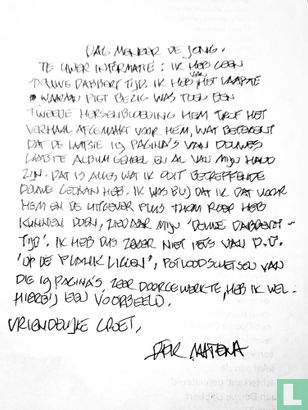 DAG MENEER DE JONG.
TE UWER INFORMATIE: IK HEB GEEN
DOUWE DABBERT TIJD. IK HEB HET LAATSTE
WAARAAN PIET BEZIG WAS TOEN EEN
TWEEDE HERSENBLOEDING HEM TROF HET
VERHAAL AFGEMAAKT VOOR HEM, WAT BETEKENT
DAT DE LAATSTE 19 PAGINA'S VAN DOUWES
LAATSTE ALBUM GEHEEL EN AL VAN MIJN HAND
ZIJN. DAT IS ALLES WAT IK OOIT BETREFFENDE
DOUWE GEDAAN HEB. IK WAS BLIJ DAT IK DAT VOOR
HEM EN DE UITGEVER PLUS THOM ROEP HEB
KUNNEN DOEN, ZIEDAAR MIJN 'DOUWE DABBERT-
TIJD'. IK HEB DUS ZEKER NIET IETS VAN D.D.
'OP DE PLANK LIGGEN', POTLOODSCHETSEN VAN
DIE 19 PAGINA'S, ZEER DOORGEWERKTE, HEB IK WEL-
HIERBIJ EEN VOORBEELD.
VRIENDELIJKE GROET,
DICK MATENA
catawiki